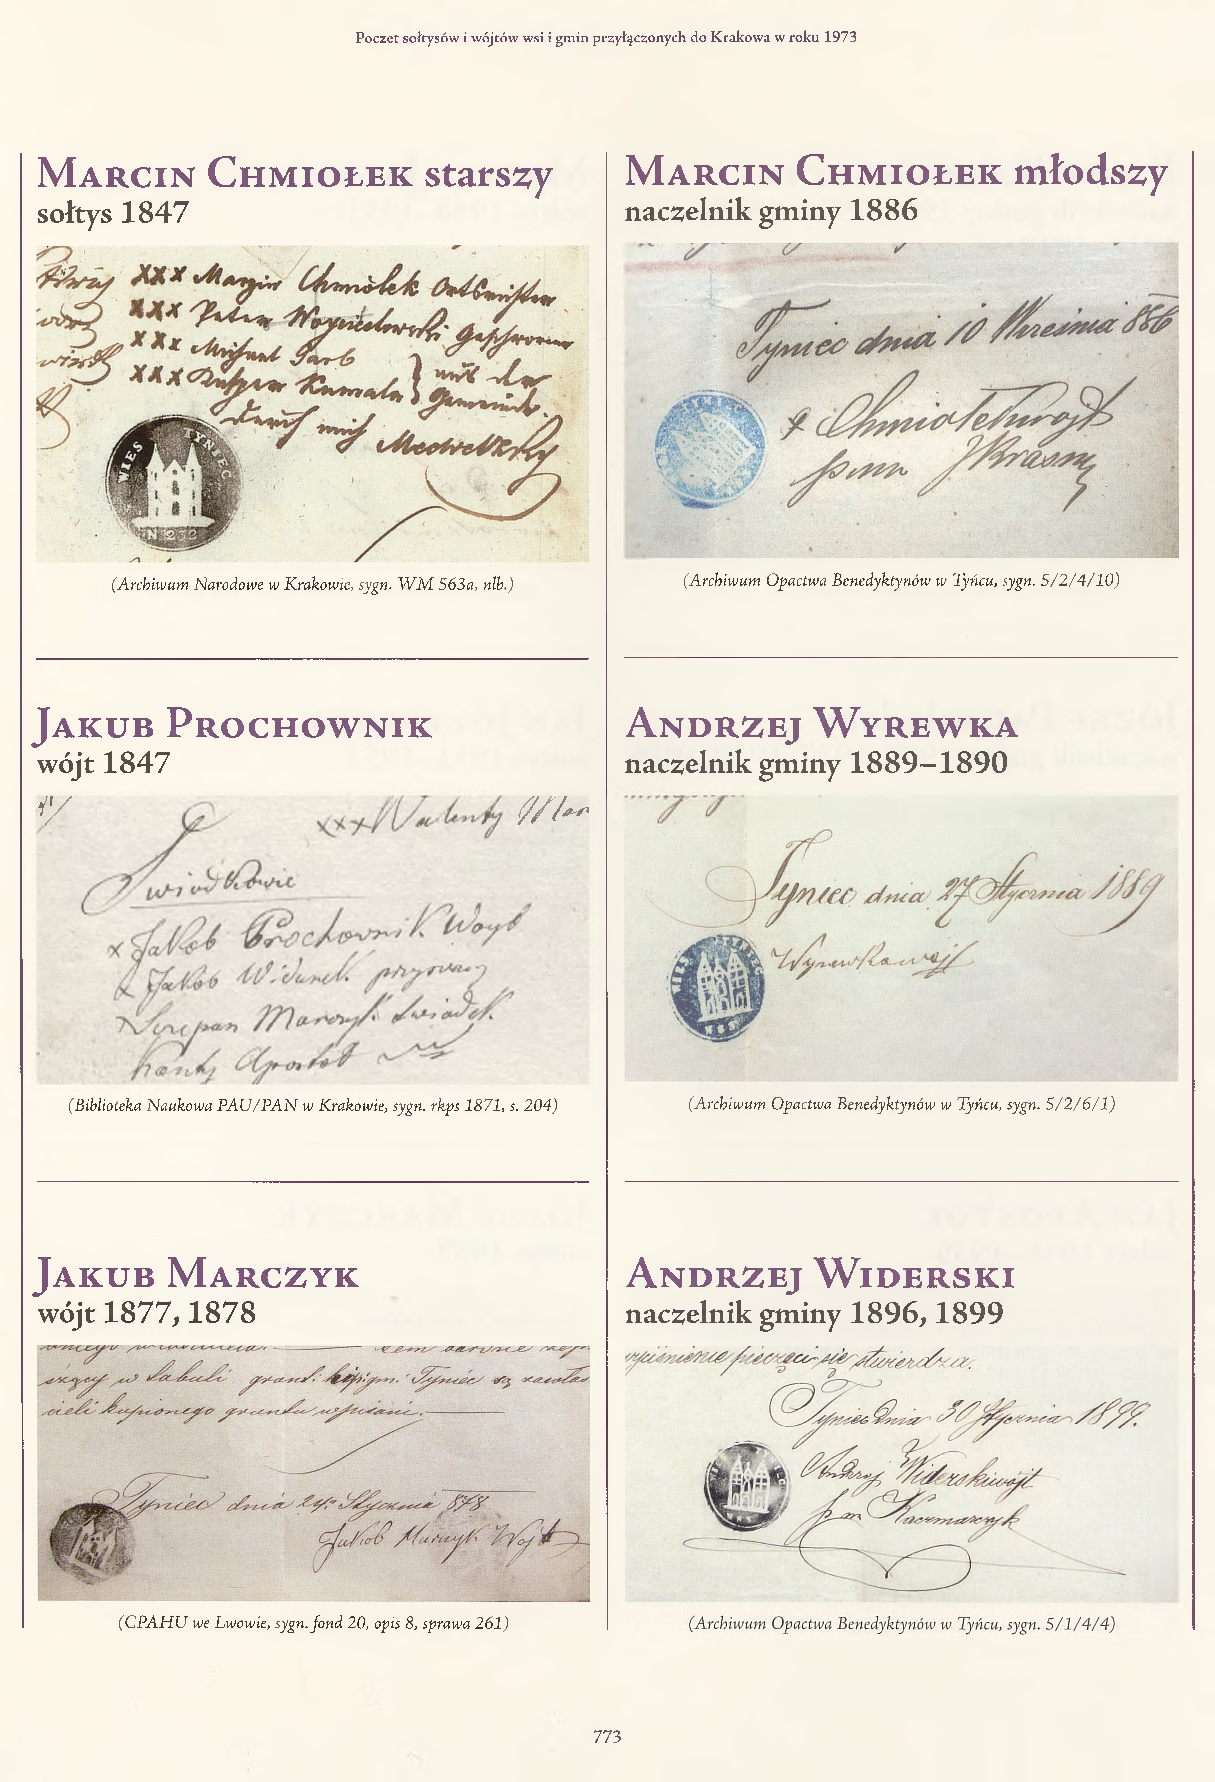 Poczet sołtysów i wójtów wsi i gmin przyłączonych do Krakowa w roku 1973
Marcin Chmiołek starszy
sołtys 1847
xxx Marzin Chmiolek Ortsrichter
xxx Peter Geschworne
xxx Michael
xxx Kasper Kumala aus der
Gemeinde.
durch mich
WIES TYNIEC
(Archiwum Narodowe w Krakowie, sygn. WM 563a, nlb.)
Jakub Prochownik
wójt 1847
xxx Walenty Mar
Swiodkowie
x Jakob Prochownik Woyt
x Jakob Widurek
x Scepan Marczyk swiadek
Kanty Apostoł
(Biblioteka Naukowa PAU/PAN w Krakowie, sygn. rkps 1871, s. 204)
Jakub Marczyk
wójt 1877, 1878
w tabuli Tyniec są
cieli kupionego gruntu wpisani.
Tyniec dnia 24go Stycznia 878
Jakób Marczyk Wójt
(CPAHU we Lwowie, sygn. fond 20, opis 8, sprawa 261)
Marcin Chmiołek młodszy
naczelnik gminy 1886
Tyniec dnia 10 886
x Chmiołek wojt
JKrasny
TYNIEC
(Archiwum Opactwa Benedyktynów w Tyńcu, sygn. 5/2/4/10)
Andrzej Wyrewka
naczelnik gminy 1889–1890
Tyniec dnia 27 Stycznia 1889
Wyrewka wojt
WIES TYNIEC
(Archiwum Opactwa Benedyktynów w Tyńcu, sygn. 5/2/6/1)
Andrzej Widerski
naczelnik gminy 1896, 1899
pieczęci się stwierdza.
Tyniec dnia 30 Stycznia 1899.
Andrzej Widerski wójt
Kaczmarczyk
(Archiwum Opactwa Benedyktynów w Tyńcu, sygn. 5/1/4/4)
773